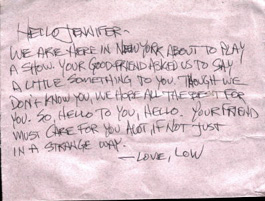 HELLO JENNIFER-
WE ARE HERE IN NEW YORK ABOUT TO PLAY
A SHOW. YOUR GOOD FRIEND ASKED US TO SAY
A LITTLE SOMETHING TO YOU. THOUGH WE
DON'T KNOW YOU, WE HOPE ALL THE BEST FOR
YOU. SO, HELLO TO YOU, HELLO. YOUR FRIEND
MUST CARE FOR YOU ALOT, IF NOT JUST
IN A STRANGE WAY.
—LOVE, LOW